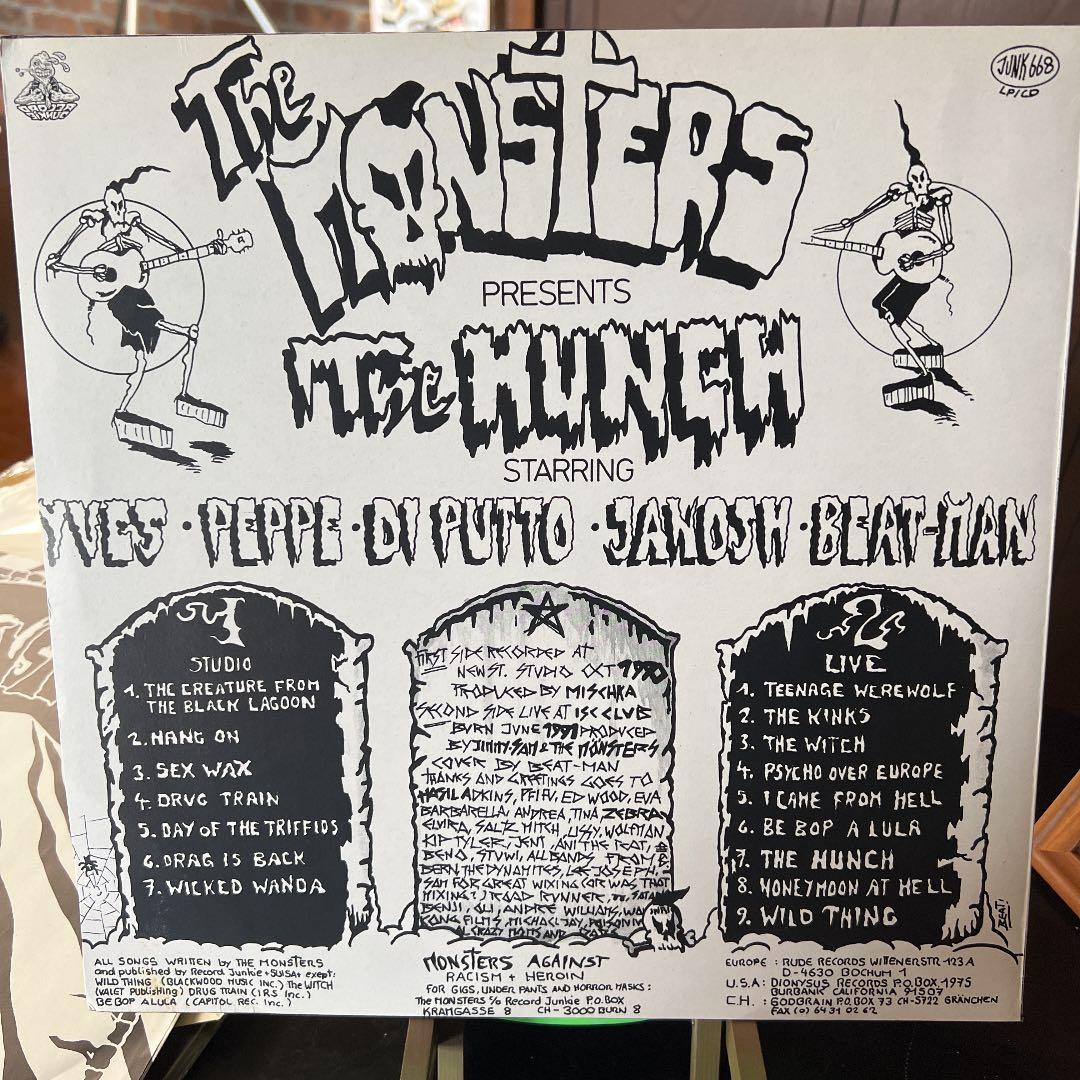 JUNK 668
LP/CD
The MONSTERS
PRESENTS
The HUNCH
STARRING
YVES · PEPPE · DI PUTTO · JANOSH · BEAT-MAN
1
STUDIO
1. THE CREATURE FROM
THE BLACK LAGOON
2. HANG ON
3. SEX WAX
4. DRUG TRAIN
5. DAY OF THE TRIFFIDS
6. DRAG IS BACK
7. WICKED WANDA
FIRST SIDE RECORDED AT
NEW ST. STUDIO OCT 1990
PRODUCED BY MISCHKA
SECOND SIDE LIVE AT ISC CLUB
BURN JUNE 1991 PRODUCED
BY JIMMY-SAM & THE MONSTERS
COVER BY BEAT-MAN
THANKS AND GREETINGS GOES TO
HASIL ADKINS, PFIFU, ED WOOD, EVA
BARBARELLA, ANDREA, TINA, ZEBRA,
ELVIRA, SALTZ, MITCH, LISSY, WOLFMAN
KIP TYLER, JENI, ANI THE PEAT,
BENO, STUWI, ALL BANDS FROM
BERN THE DYNAMITES, LEE JOSEPH,
SAM FOR GREAT MIXING (OR WAS THAT
MIXING?) ROAD RUNNER,
BENJI, OLI, ANDRE WILLIAMS,
KONG FILMS, MICHAEL JAY, POISON
2
LIVE
1. TEENAGE WEREWOLF
2. THE KINKS
3. THE WITCH
4. PSYCHO OVER EUROPE
5. I CAME FROM HELL
6. BE BOP A LULA
7. THE HUNCH
8. HONEYMOON AT HELL
9. WILD THING
BEAT
ALL SONGS WRITTEN by THE MONSTERS
and published by Record Junkie + SUSA+ exept:
WILD THING (BLACKWOOD MUSIC INC.) THE WITCH
(VALET PUBLISHING) DRUG TRAIN (IRS Inc.)
BE BOP A LULA (CAPITOL REC. Inc.)
MONSTERS AGAINST
RACISM + HEROIN
FOR GIGS, UNDER PANTS AND HORROR MASKS:
The MONSTERS c/o Record Junkie P.O. BOX
KRAMGASSE 8 CH-3000 BURN 8
EUROPE : RUDE RECORDS WITTENERSTR·123 A
D-4630 BOCHUM 1
U.S.A : DIONYSUS RECORDS P.O. BOX 1975
BURBANK CALIFORNIA 91507
C.H. : GODBRAIN P.O. BOX 73 CH-5722 GRÄNCHEN
FAX (0) 64 31 02 62